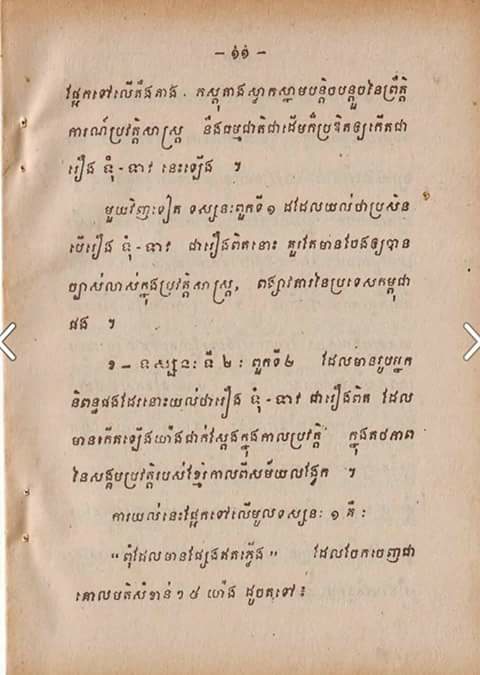 - ១១ -
ផ្អែកទៅលើតឹងតាង . កស្តុតាងស្វាកស្នាមបន្តិចបន្តួចនៃព្រឹត្តិ
ការណ៍ប្រវត្តិសាស្ត្រ នឹងធម្មជាតិជាដើមក៏ប្រឌិតឲ្យកើតជា
រឿង ទុំ-ទាវ នេះឡើង ។
មួយវិញទៀត ទស្សនៈពួកទី១ ដដែលយល់ថាប្រសិន
បើរឿង ទុំ-ទាវ ជារឿងពិតនោះ គួរតែមានចែងឲ្យបាន
ច្បាស់លាស់ក្នុងប្រវត្តិសាស្ត្រ, ពង្សាវតារនៃប្រទេសកម្ពុជា
ផង ។
ខ – ទស្សនៈ ទី ២ : ពួកទី២ ដែលមានរូបអ្នក
និពន្ធផងដែរនោះយល់ថារឿង ទុំ-ទាវ ជារឿងពិត ដែល
មានកើតឡើងយ៉ាងជាក់ស្តែងក្នុងកាលប្រវត្តិ ក្នុងគប់ភាព
នៃសង្គមប្រវត្តិរបស់ខ្មែរកាលពីសម័យលង្វែក ។
ការយល់នេះផ្អែកទៅលើមូលទស្សនៈ ១ គឺ :
"ពុំដែលមានផ្សែងឥតភ្លើង" ដែលចែកចេញជា
គោលមតិសំខាន់ៗ ៨ យ៉ាង ដូចតទៅ ៖